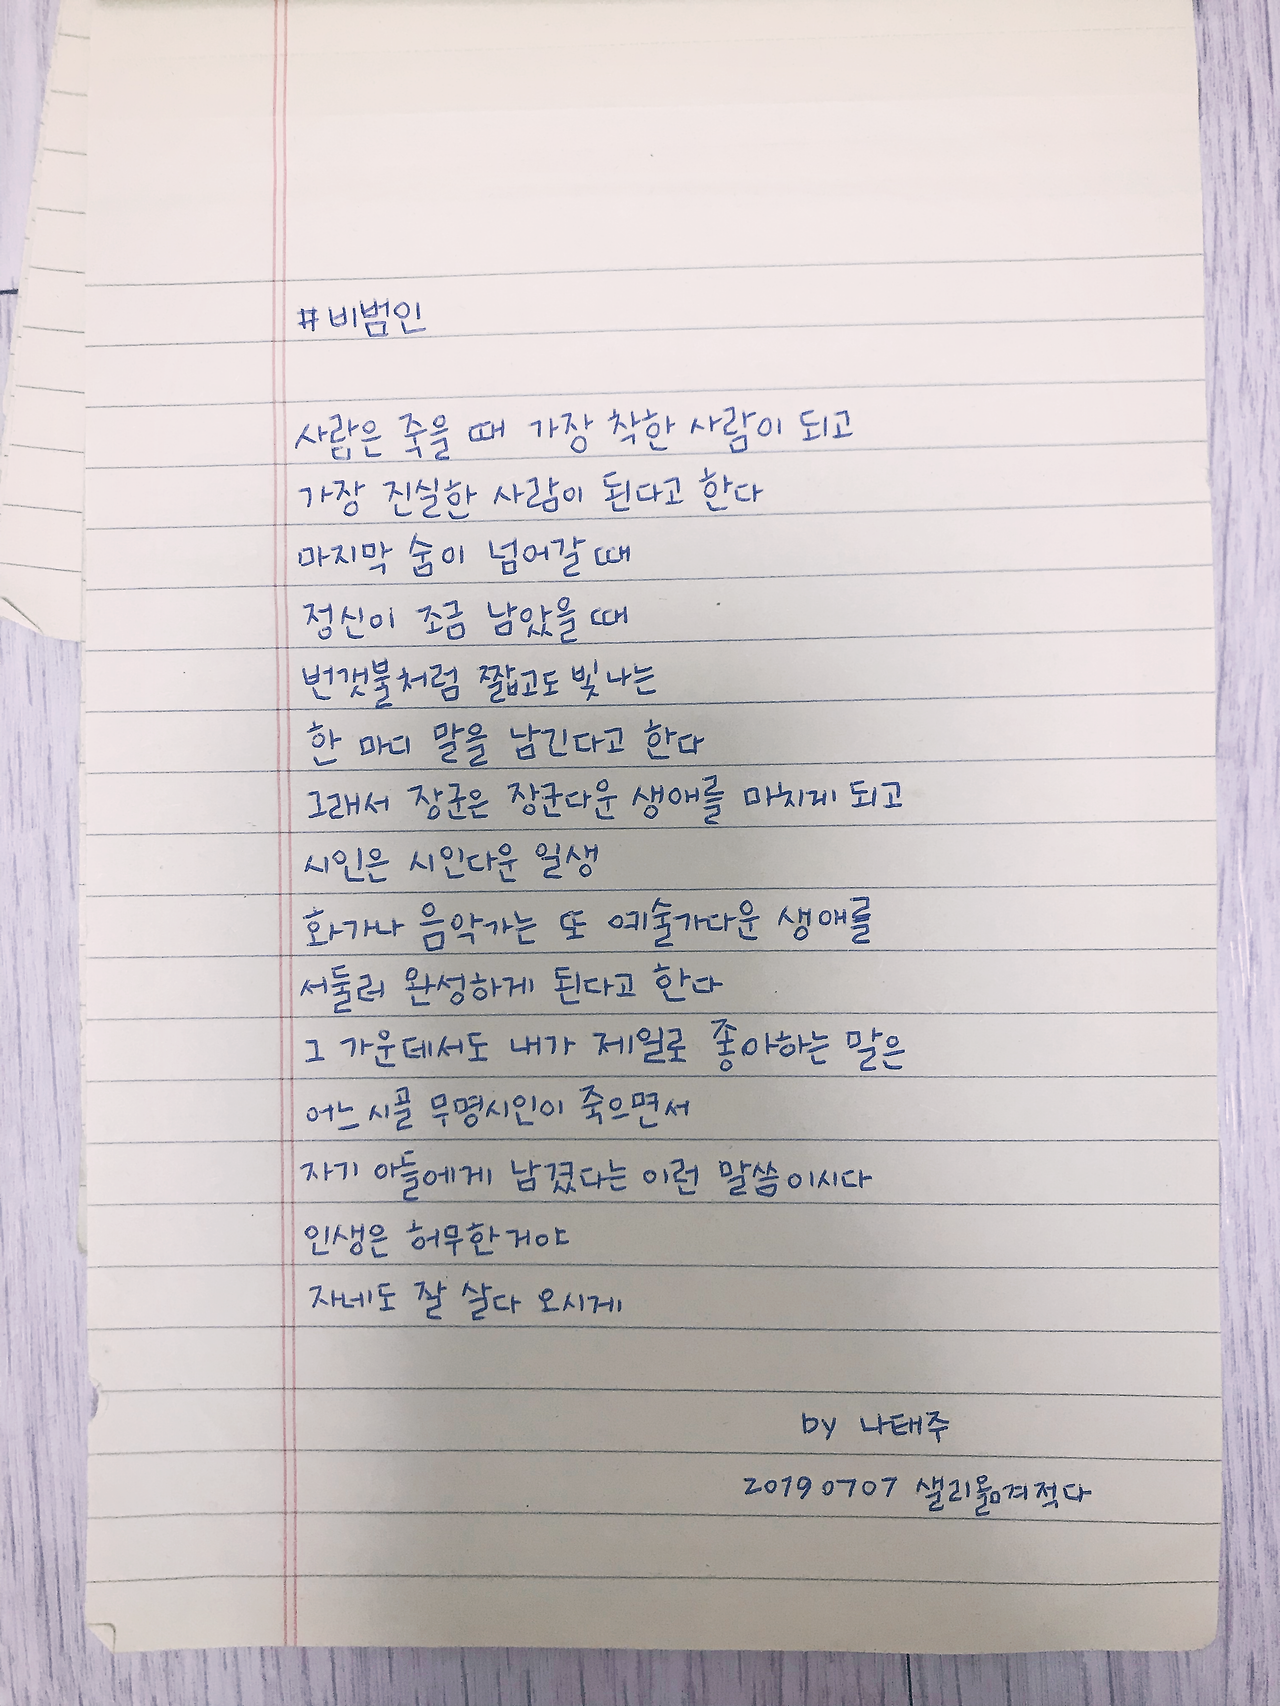 #비범인
사람은 죽을 때 가장 착한 사람이 되고
가장 진실한 사람이 된다고 한다
마지막 숨이 넘어갈 때
정신이 조금 남았을 때
번갯불처럼 짧고도 빛나는
한 마디 말을 남긴다고 한다
그래서 장군은 장군다운 생애를 마치게 되고
시인은 시인다운 일생
화가나 음악가는 또 예술가다운 생애를
서둘러 완성하게 된다고 한다
그 가운데서도 내가 제일로 좋아하는 말은
어느 시골 무명시인이 죽으면서
자기 아들에게 남겼다는 이런 말씀이시다
인생은 허무한거야
자네도 잘 살다 오시게
by 나태주
20190707 샐리옮겨적다